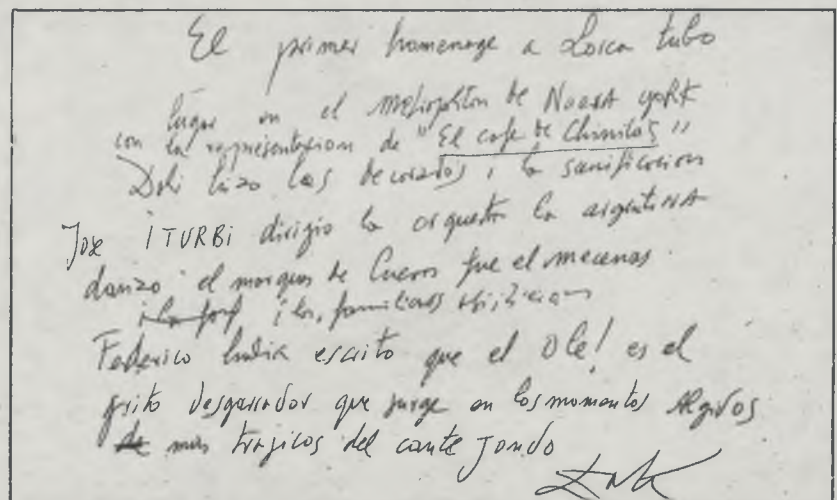 El primer homenage a Lorca tubo
lugar en el metropoliton de Nueva yoRK
con la representacion de "El cafe de Chinitas"
Dali hizo los decorados i la
José iTURBi dirigio la orquesta la argentina
danzo el marques de Cuevas fue el mecenas
i los familiares
Federico habia escrito que el Ole! es el
grito desgarrador que surge en los momentos algidos
mas tragicos del cante jondo